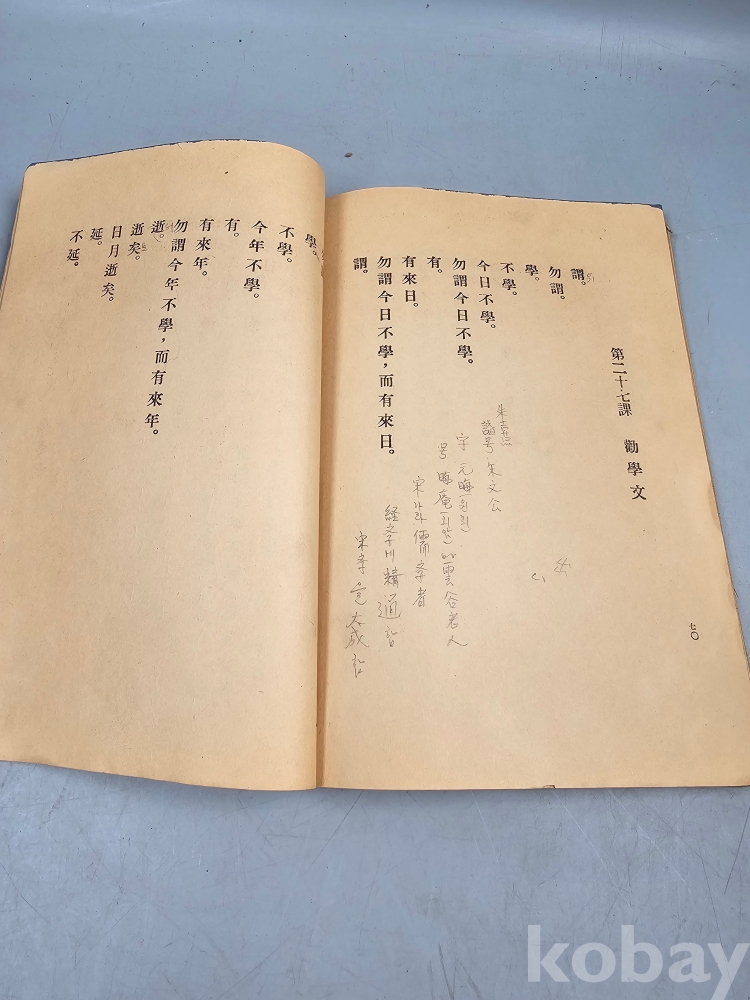 第二十七課 勸學文
謂。
勿謂。
學。
不學。
今日不學。
勿謂今日不學。
有。
有來日。
勿謂今日不學，而有來日。
謂。
朱熹
諡号 朱文公
字 元晦(원회)
号 晦庵(회암) 雲谷老人
宋나라 儒学者
経学에 精通함
宋学을 大成함
七〇
學。
不學。
今年不學。
有。
有來年。
勿謂今年不學，而有來年。
逝。
逝矣。
日月逝矣。
延。
不延。
kobay